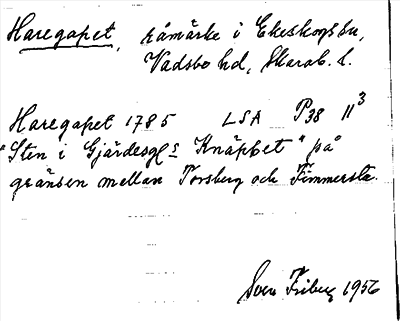 Haregapet, råmärke i Ekeskogs sn,
Vadsbo hd, Skarab. l.
Haregapet 1785 LSA P38 11³
"Sten i Gjärdesgl s Knäppet" på
gränsen mellan Torsberg och Timmersla.
Sven Friberg 1956